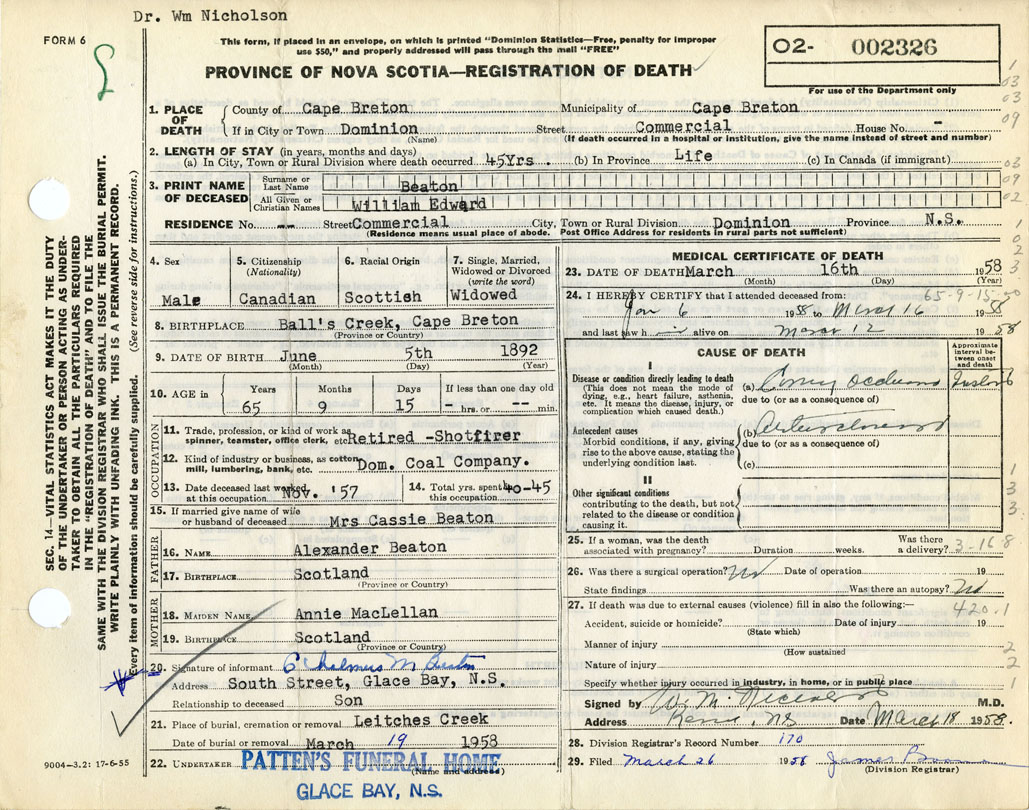 Dr. Wm Nicholson
FORM 6
This form, if placed in an envelope, on which is printed "Dominion Statistics—Free, penalty for improper
use $50," and properly addressed will pass through the mail "FREE"
PROVINCE OF NOVA SCOTIA—REGISTRATION OF DEATH
02- 002326
For use of the Department only
SEC. 14—VITAL STATISTICS ACT MAKES IT THE DUTY
OF THE UNDERTAKER OR PERSON ACTING AS UNDER-
TAKER TO OBTAIN ALL THE PARTICULARS REQUIRED
IN THE "REGISTRATION OF DEATH" AND TO FILE THE
SAME WITH THE DIVISION REGISTRAR WHO SHALL ISSUE THE BURIAL PERMIT.
WRITE PLAINLY WITH UNFADING INK. THIS IS A PERMANENT RECORD.
Every item of information should be carefully supplied. (See reverse side for instructions.)
1. PLACE OF DEATH County of Cape Breton Municipality of Cape Breton
If in City or Town Dominion Street Commercial House No. -
(Name) (If death occurred in a hospital or institution, give the name instead of street and number)
2. LENGTH OF STAY (in years, months and days)
(a) In City, Town or Rural Division where death occurred 45Yrs. (b) In Province Life (c) In Canada (if immigrant)
3. PRINT NAME OF DECEASED Surname or Last Name Beaton
All Given or Christian Names William Edward
RESIDENCE No. -- Street Commercial City, Town or Rural Division Dominion Province N.S.
(Residence means usual place of abode. Post Office Address for residents in rural parts not sufficient)
4. Sex Male
5. Citizenship (Nationality) Canadian
6. Racial Origin Scottish
7. Single, Married, Widowed or Divorced (write the word) Widowed
8. BIRTHPLACE Ball's Creek, Cape Breton
(Province or Country)
9. DATE OF BIRTH June 5th 1892
(Month) (Day) (Year)
10. AGE in Years Months Days If less than one day old
65 9 15 - hrs. or -- min.
OCCUPATION
11. Trade, profession, or kind of work as
spinner, teamster, office clerk, etc. Retired -Shotfirer
12. Kind of industry or business, as cotton
mill, lumbering, bank, etc. Dom. Coal Company.
13. Date deceased last worked at this occupation Nov. '57
14. Total yrs. spent this occupation 40-45
15. If married give name of wife
or husband of deceased Mrs Cassie Beaton
FATHER
16. NAME Alexander Beaton
17. BIRTHPLACE Scotland
(Province or Country)
MOTHER
18. MAIDEN NAME Annie MacLellan
19. BIRTHPLACE Scotland
(Province or Country)
20. Signature of informant Chalmers M Beaton
Address South Street, Glace Bay, N.S.
Relationship to deceased Son
21. Place of burial, cremation or removal Leitches Creek
Date of burial or removal March 19 1958
22. UNDERTAKER PATTEN'S FUNERAL HOME
(Name and address)
GLACE BAY, N.S.
9004-3.2: 17-6-55
MEDICAL CERTIFICATE OF DEATH
23. DATE OF DEATH March 16th 1958
(Month) (Day) (Year)
24. I HEREBY CERTIFY that I attended deceased from: 65-9-15-50
Jan 6 1958 to Mar 16 1958
and last saw h im alive on Mar 12 1958
CAUSE OF DEATH
Approximate interval between onset and death
I
Disease or condition directly leading to death
(This does not mean the mode of
dying, e.g., heart failure, asthenia,
etc. It means the disease, injury, or
complication which caused death.)
(a) Coronary Occlusion
due to (or as a consequence of)
Antecedent causes
Morbid conditions, if any, giving
rise to the above cause, stating the
underlying condition last.
(b) Arteriosclerosis
due to (or as a consequence of)
(c)
II
Other significant conditions
contributing to the death, but not
related to the disease or condition
causing it.
25. If a woman, was the death
associated with pregnancy? Duration weeks. Was there a delivery? 3-16 8
26. Was there a surgical operation? No Date of operation 19
State findings Was there an autopsy? No
27. If death was due to external causes (violence) fill in also the following:— 420.1
Accident, suicide or homicide? Date of injury 19
(State which)
Manner of injury
(How sustained
Nature of injury
Specify whether injury occurred in industry, in home, or in public place
Signed by W. M. Nicholson M.D.
Address N.S. Date March 18 1958.
28. Division Registrar's Record Number 170
29. Filed March 26 1958 James
(Division Registrar)